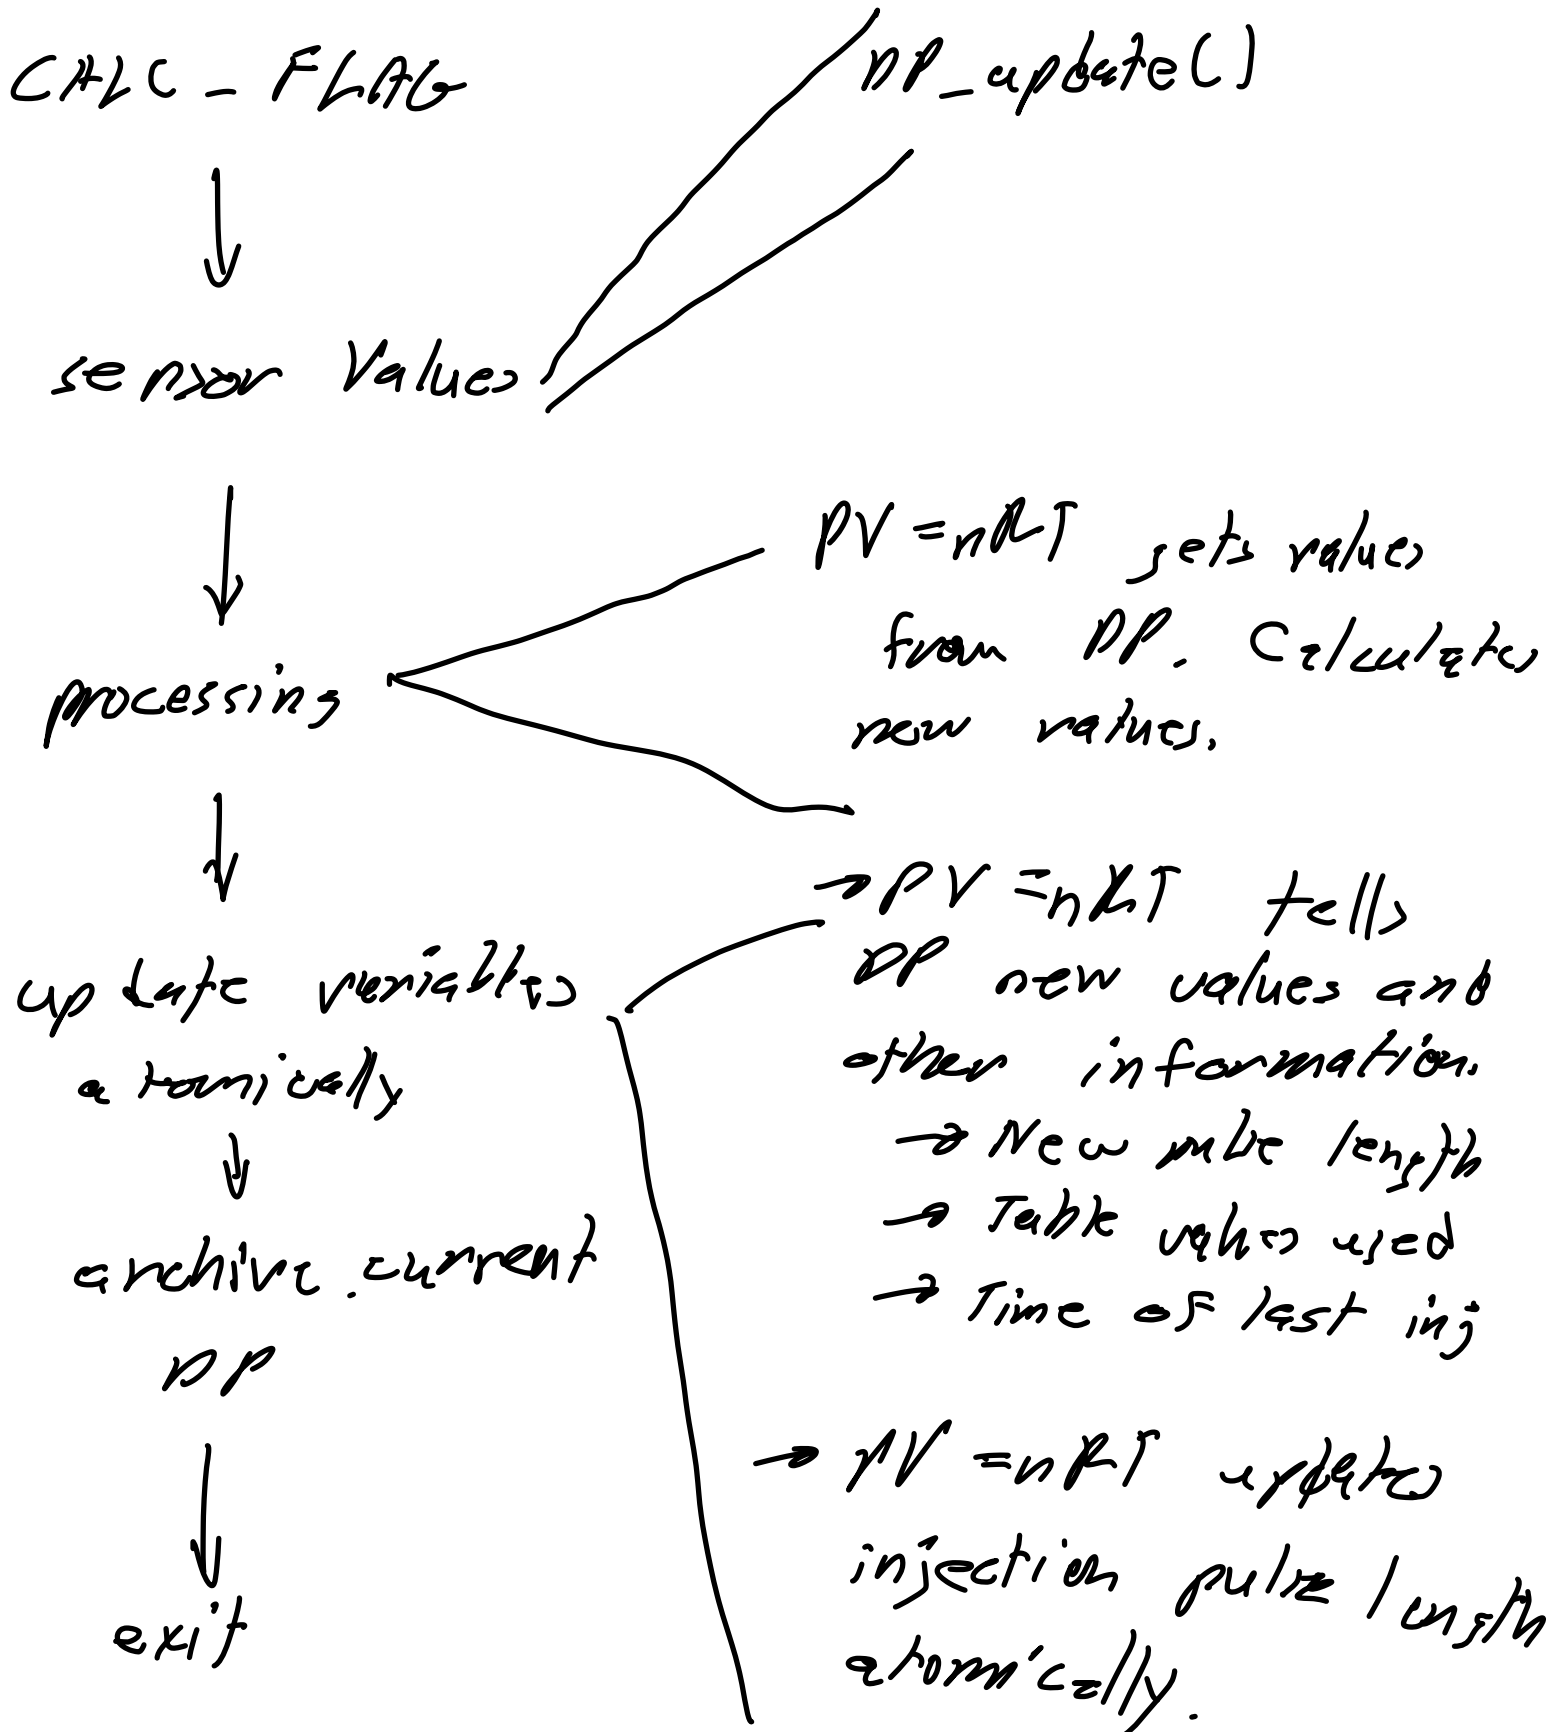 CALC_FLAG
sensor values
processing
update variables
atomically
archive current
DP
exit
DP_update()
PV=nRT gets values
from DP. Calculates
new values.
→ PV=nRT tells
DP new values and
other information.
→ New pulse length
→ Table values used
→ Time of last inj
→ PV=nRT updates
injection pulse length
atomically.